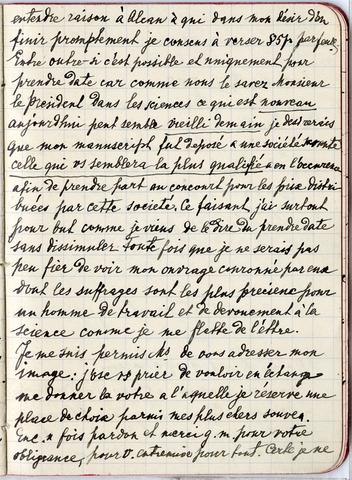 entendre raison à Alcan à qui dans mon désir d'en
finir promptement je consens à verser 85f par feuille
Entre outre si c'est possible et uniquement pour
prendre date car comme nous le savez Monsieur
le président dans les sciences ce qui est nouveau
aujourdhui peut semble vieilli demain je désirerais
que mon manuscript fut déposé a une société savante
celle qui vs semblera la plus qualifié en l'occurence
afin de prendre part au concourt pour les prix distri-
buées par cette société. Ce faisant j'ai surtout
pour but comme je viens de le dire du prendre date
sans dissimuler toute fois que je ne serais pas
peu fier de voir mon ouvrage couronné par eux
dont les suffrages sont les plus precieux pour
un homme de travail et de devouement à la
science comme je me flatte de l'être.
Je me suis permis Ms de vous adresser mon
image : j'ose vs prier de vouloir en échange
me donner la votre a l'aquelle je réserve une
place de choix parmis mes plus chers souve.
Enc. n fois pardon et merci q. m. pour votre
obligeance, pour v. entremise pour tout. Certe je ne